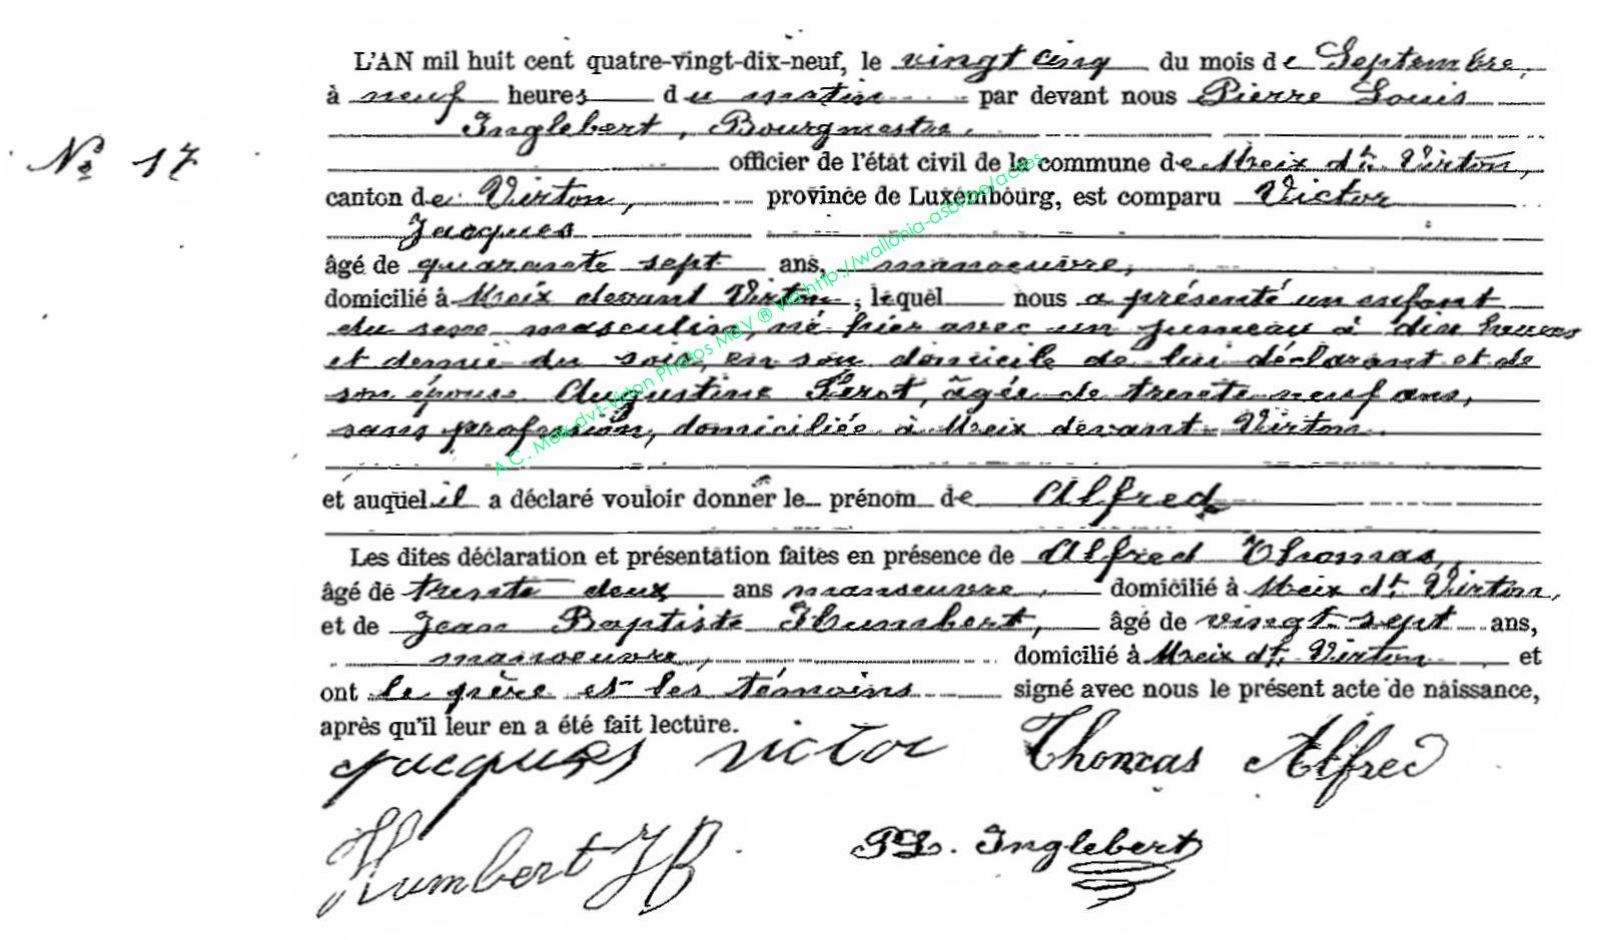 L'AN mil huit cent quatre-vingt-dix-neuf, le vingt cinq du mois de Septembre,
à neuf heures du matin par devant nous Pierre Louis
Inglebert, Bourgmestre,
N° 17
officier de l'état civil de la commune de Meix dt. Virton,
canton de Virton, province de Luxembourg, est comparu Victor
Jacques
âgé de quarante sept ans, manoeuvre,
domicilié à Meix devant Virton, lequel nous a présenté un enfant
du sexe masculin, né hier avec un jumeau à dix heures
et demie du soir, en son domicile de lui déclarant et de
son épouse Augustine Perot, âgée de trente neuf ans,
sans profession, domiciliée à Meix devant Virton.
et auquel il a déclaré vouloir donner le prénom de Alfred
Les dites déclaration et présentation faites en présence de Alfred Thomas,
âgé de trente deux ans manoeuvre, domicilié à Meix dt. Virton,
et de Jean Baptiste Humbert, âgé de vingt sept ans,
manoeuvre, domicilié à Meix dt. Virton et
ont le père et les témoins signé avec nous le présent acte de naissance,
après qu'il leur en a été fait lecture.
Jacques Victor Thomas Alfred
Humbert JB PL. Inglebert